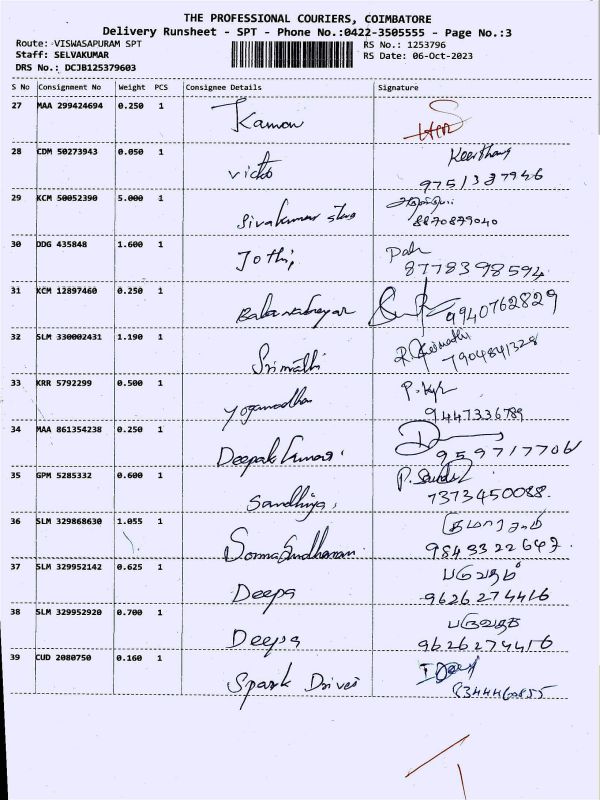 THE PROFESSIONAL COURIERS, COIMBATORE
Delivery Runsheet - SPT - Phone No.:0422-3505555 - Page No.:3
Route: VISWASAPURAM SPT RS No.: 1253796
Staff: SELVAKUMAR RS Date: 06-Oct-2023
DRS No.: DCJB125379603
S No Consignment No Weight PCS Consignee Details Signature
27 MAA 299424694 0.250 1
Kamon
28 CDM 50273943 0.050 1 Keerthang
9751337946
29 KCM 50052390 5.000 1
Sivakumar 8870879040
30 DDG 435848 1.600 1
Jothi, 8778398594
31 KCM 12897460 0.250 1
9940762829
32 SLM 330002431 1.190 1
Srimathi 7904841328
33 KRR 5792299 0.500 1
9447336789
34 MAA 861354238 0.250 1
Deepak Kumar. 9597177706
35 GPM 5285332 0.600 1
Sandhiya, 7373450088.
36 SLM 329868630 1.055 1
9843322647.
37 SLM 329952142 0.625 1
Deepa 9626274416
38 SLM 329952920 0.700 1
Deepa 9626274416
39 CUD 2080750 0.160 1
Spark Drives 8344460855